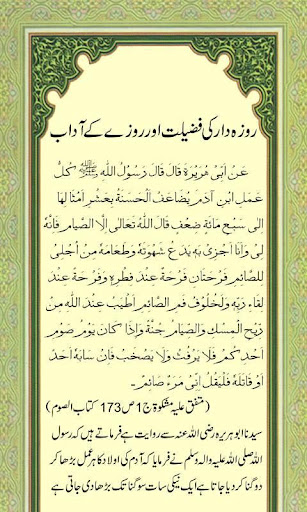 روزہ دار کی فضیلت اور روزے کے آداب
عَنْ اَبِیْ هُرَيْرَةَ قَالَ قَالَ رَسُوْلُ اللهِ ﷺ كُلُّ
عَمَلِ ابْنِ آدَمَ يُضَاعَفُ الْحَسَنَةُ بِعَشْرِ اَمْثَالِهَا
إِلٰى سَبْعِ مِائَةِ ضِعْفٍ قَالَ اللهُ تَعَالٰى إِلَّا الصِّيَامَ فَاِنَّهٗ
لِیْ وَاَنَا اَجْزِیْ بِهٖ يَدَعُ شَهْوَتَهٗ وَطَعَامَهٗ مِنْ اَجْلِیْ
لِلصَّائِمِ فَرْحَتَانِ فَرْحَةٌ عِنْدَ فِطْرِهٖ وَفَرْحَةٌ عِنْدَ
لِقَاءِ رَبِّهٖ وَلَخُلُوْفُ فَمِ الصَّائِمِ اَطْيَبُ عِنْدَ اللهِ مِنْ
رِيْحِ الْمِسْكِ وَالصِّيَامُ جُنَّةٌ وَاِذَا كَانَ يَوْمُ صَوْمِ
اَحَدِكُمْ فَلَا يَرْفُثْ وَلَا يَصْخَبْ فَاِنْ سَابَّهٗ اَحَدٌ
اَوْ قَاتَلَهٗ فَلْيَقُلْ اِنِّیْ امْرَءٌ صَائِمٌ۔
(متفق علیہ مشکوۃ ج1 ص173 کتاب الصوم)
سیدنا ابو ہریرہ رضی اللہ عنہ سے روایت ہے فرماتے ہیں کہ رسول
اللہ صلی اللہ علیہ والہ وسلم نے فرمایا کہ آدم کی اولاد کا ہر عمل بڑھا کر
دو گنا کر دیا جاتا ہے ایک نیکی سات سو گنا تک بڑھا دی جاتی ہے